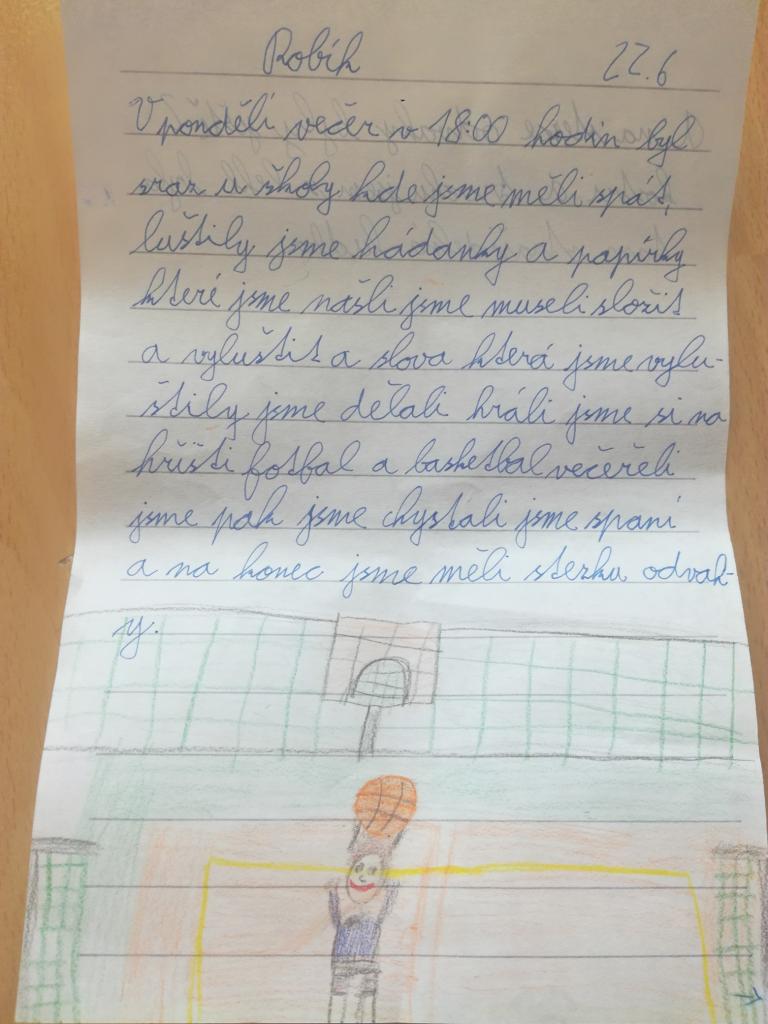 Robík 22.6
V pondělí večer v 18:00 hodin byl
sraz u školy kde jsme měli spát,
luštily jsme hádanky a papírky
které jsme našli jsme museli složit
a vyluštit a slova která jsme vylu-
štily jsme dělali hráli jsme si na
hřišti fotbal a basketbal večeřeli
jsme pak jsme chystali jsme spaní
a na konec jsme měli stezku odvah-
y.